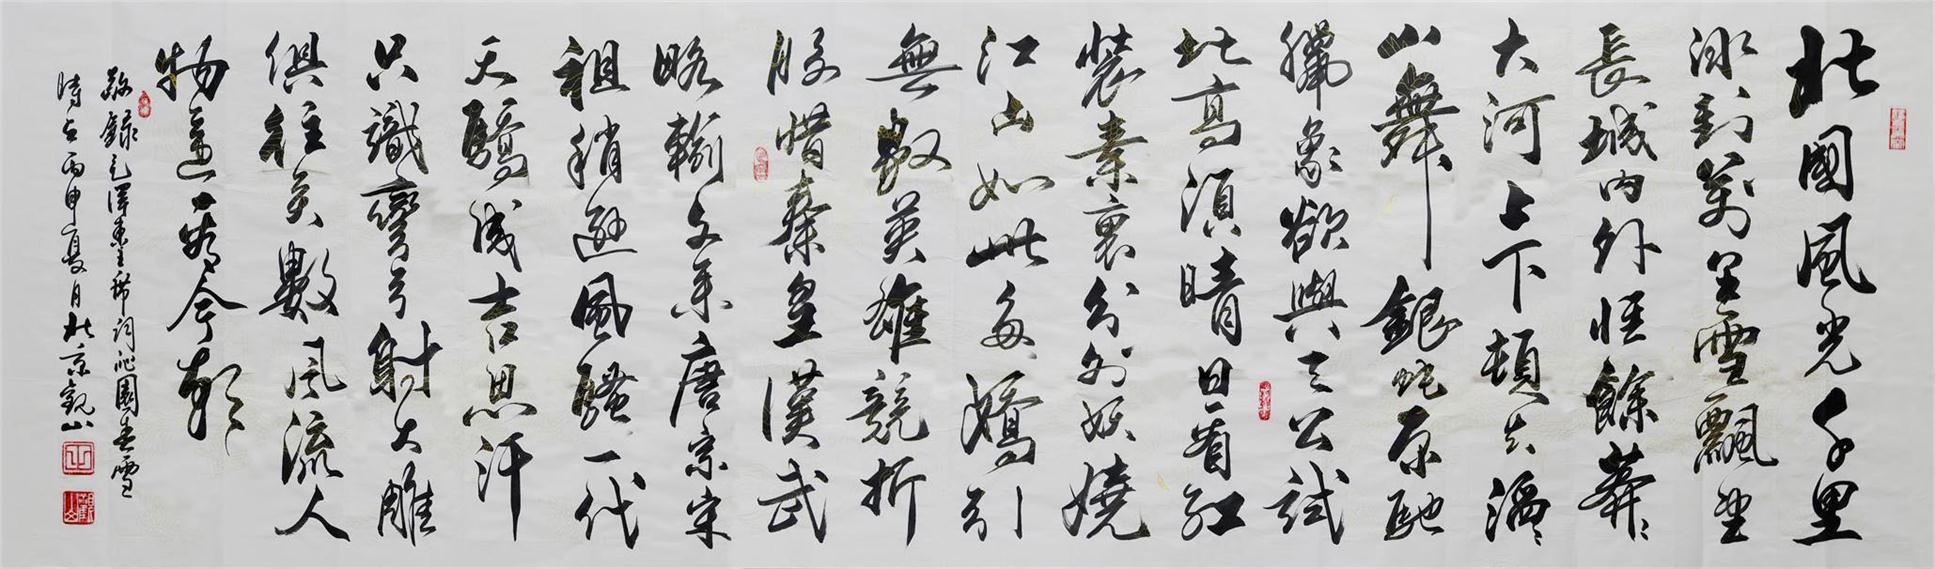 北國風光千里
冰封萬里雪飄望
長城内外惟餘莽〻
大河上下頓失滔〻
山舞銀蛇原馳
臘象欲與天公試
比高須晴日看紅
裝素裹分外妖嬈
江山如此多嬌引
無數英雄競折
腰惜秦皇漢武
略輸文采唐宗宋
祖稍遜風騷一代
天驕成吉思汗
只識彎弓射大雕
俱往矣數風流人
物還看今朝
錄毛澤東主席詞沁園春雪
時在丙申夏月於京觀山